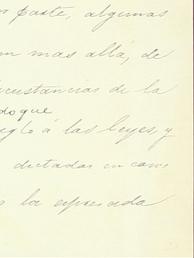 parte, algunas
mas allá, de
circunstancias de la
do que
arreglo á las leyes, y
dictadas en casos
la expresada